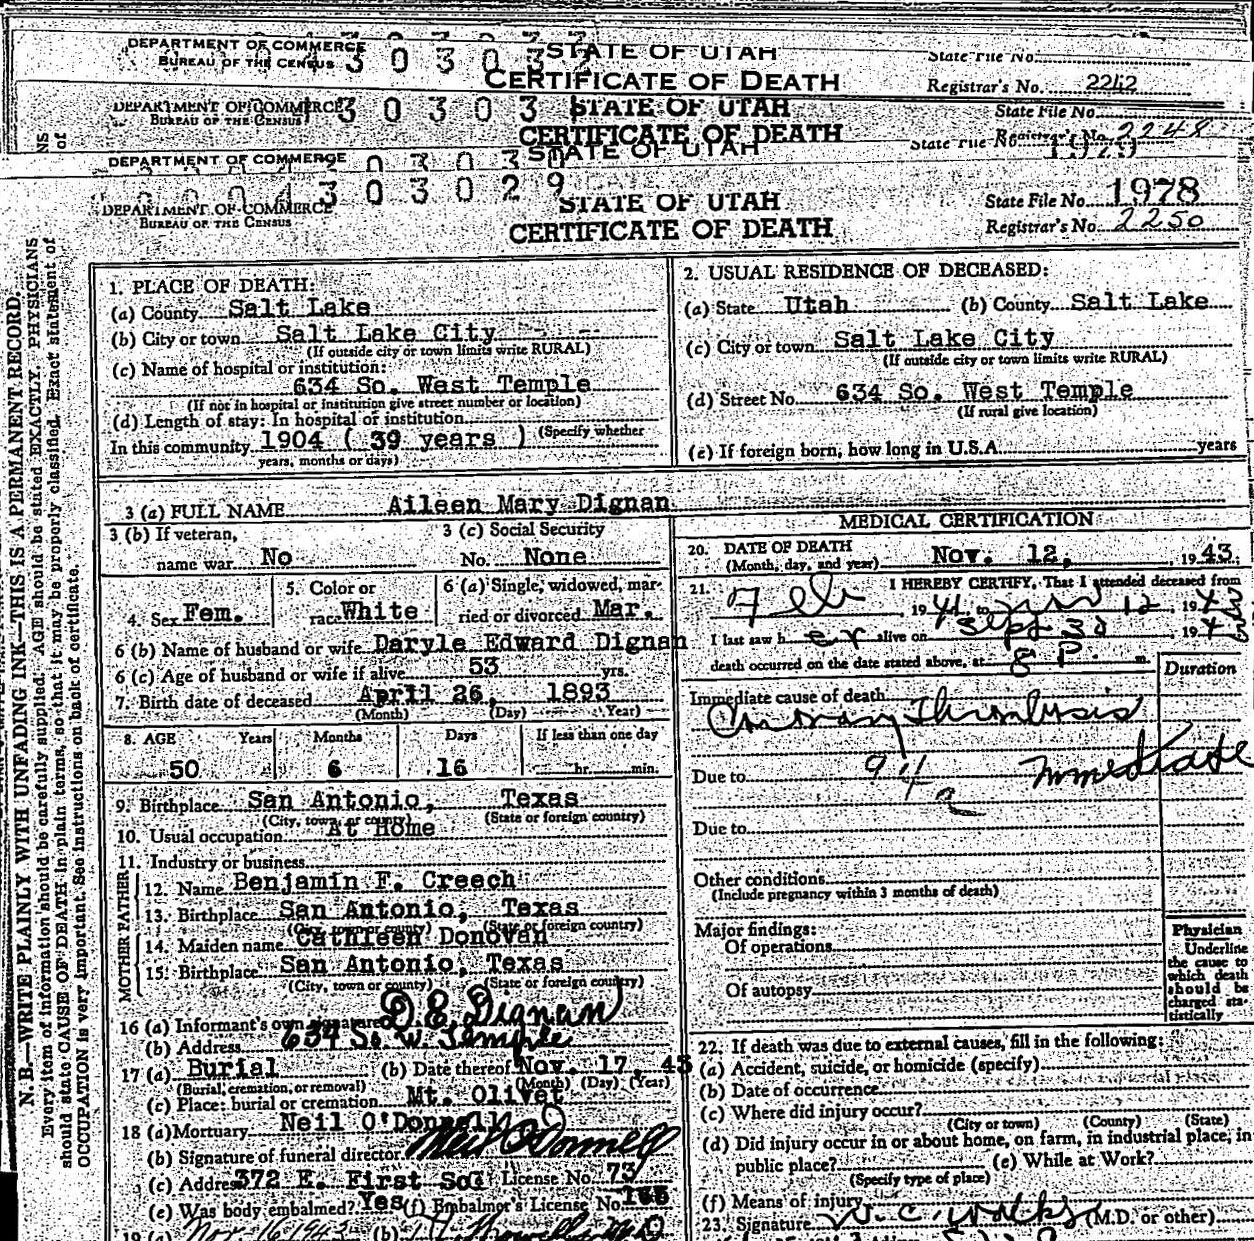 DEPARTMENT OF COMMERCE
BUREAU OF THE CENSUS
STATE OF UTAH
CERTIFICATE OF DEATH
State File No.
Registrar's No. 2242
DEPARTMENT OF COMMERCE
BUREAU OF THE CENSUS
3 0 3 0 3
STATE OF UTAH
CERTIFICATE OF DEATH
State File No.
Registrar's No. 2248
DEPARTMENT OF COMMERCE
STATE OF UTAH
State File No. 1979
3 0 3 0 2 9
DEPARTMENT OF COMMERCE
BUREAU OF THE CENSUS
STATE OF UTAH
CERTIFICATE OF DEATH
State File No. 1978
Registrar's No. 2250
N. B.—WRITE PLAINLY WITH UNFADING INK—THIS IS A PERMANENT RECORD.
Every item of information should be carefully supplied. AGE should be stated EXACTLY. PHYSICIANS
should state CAUSE OF DEATH in plain terms, so that it may be properly classified. Exact statement of
OCCUPATION is very important. See instructions on back of certificate.
1. PLACE OF DEATH:
(a) County Salt Lake
(b) City or town Salt Lake City
(If outside city or town limits write RURAL)
(c) Name of hospital or institution:
634 So. West Temple
(If not in hospital or institution give street number or location)
(d) Length of stay: In hospital or institution
(Specify whether
In this community 1904 ( 39 years )
years, months or days)
2. USUAL RESIDENCE OF DECEASED:
(a) State Utah (b) County Salt Lake
(c) City or town Salt Lake City
(If outside city or town limits write RURAL)
(d) Street No. 634 So. West Temple
(If rural give location)
(e) If foreign born, how long in U.S.A. years
3 (a) FULL NAME Aileen Mary Dignan
3 (b) If veteran,
name war No
3 (c) Social Security
No. None
4. Sex Fem.
5. Color or
race White
6 (a) Single, widowed, mar-
ried or divorced Mar.
6 (b) Name of husband or wife Daryle Edward Dignan
6 (c) Age of husband or wife if alive 53 yrs.
7. Birth date of deceased April 26, 1893
(Month) (Day) (Year)
8. AGE Years Months Days If less than one day
50 6 16 hr. min.
9. Birthplace San Antonio, Texas
(City, town, or county) (State or foreign country)
10. Usual occupation At Home
11. Industry or business
FATHER
12. Name Benjamin F. Creech
13. Birthplace San Antonio, Texas
(City, town or county) (State or foreign country)
MOTHER
14. Maiden name Cathleen Donovan
15. Birthplace San Antonio, Texas
(City, town or county) (State or foreign country)
16 (a) Informant's own signature D. E. Dignan
(b) Address 634 So. W. Temple
17 (a) Burial (b) Date thereof Nov. 17, 43
(Burial, cremation, or removal) (Month) (Day) (Year)
(c) Place: burial or cremation Mt. Olivet
18 (a) Mortuary Neil O'Donnell
(b) Signature of funeral director Neil O'Donnell
(c) Address 372 E. First So. License No. 73
(e) Was body embalmed? Yes (f) Embalmer's License No.
19 (a) Nov-16 1943 (b)
MEDICAL CERTIFICATION
20. DATE OF DEATH
(Month, day, and year) Nov. 12, 1943.
21. I HEREBY CERTIFY, That I attended deceased from
Feb 1941 to Nov 12, 194
I last saw her alive on Sept 194
death occurred on the date stated above, at 8 P. m.
Duration
Immediate cause of death
Coronary Thrombosis
Immediate
Due to 94a
Due to
Other conditions
(Include pregnancy within 3 months of death)
Major findings:
Of operations
Of autopsy
Physician
Underline
the cause to
which death
should be
charged sta-
tistically
22. If death was due to external causes, fill in the following:
(a) Accident, suicide, or homicide (specify)
(b) Date of occurrence
(c) Where did injury occur?
(City or town) (County) (State)
(d) Did injury occur in or about home, on farm, in industrial place, in
public place? (e) While at Work?
(Specify type of place)
(f) Means of injury
23. Signature (M.D. or other)